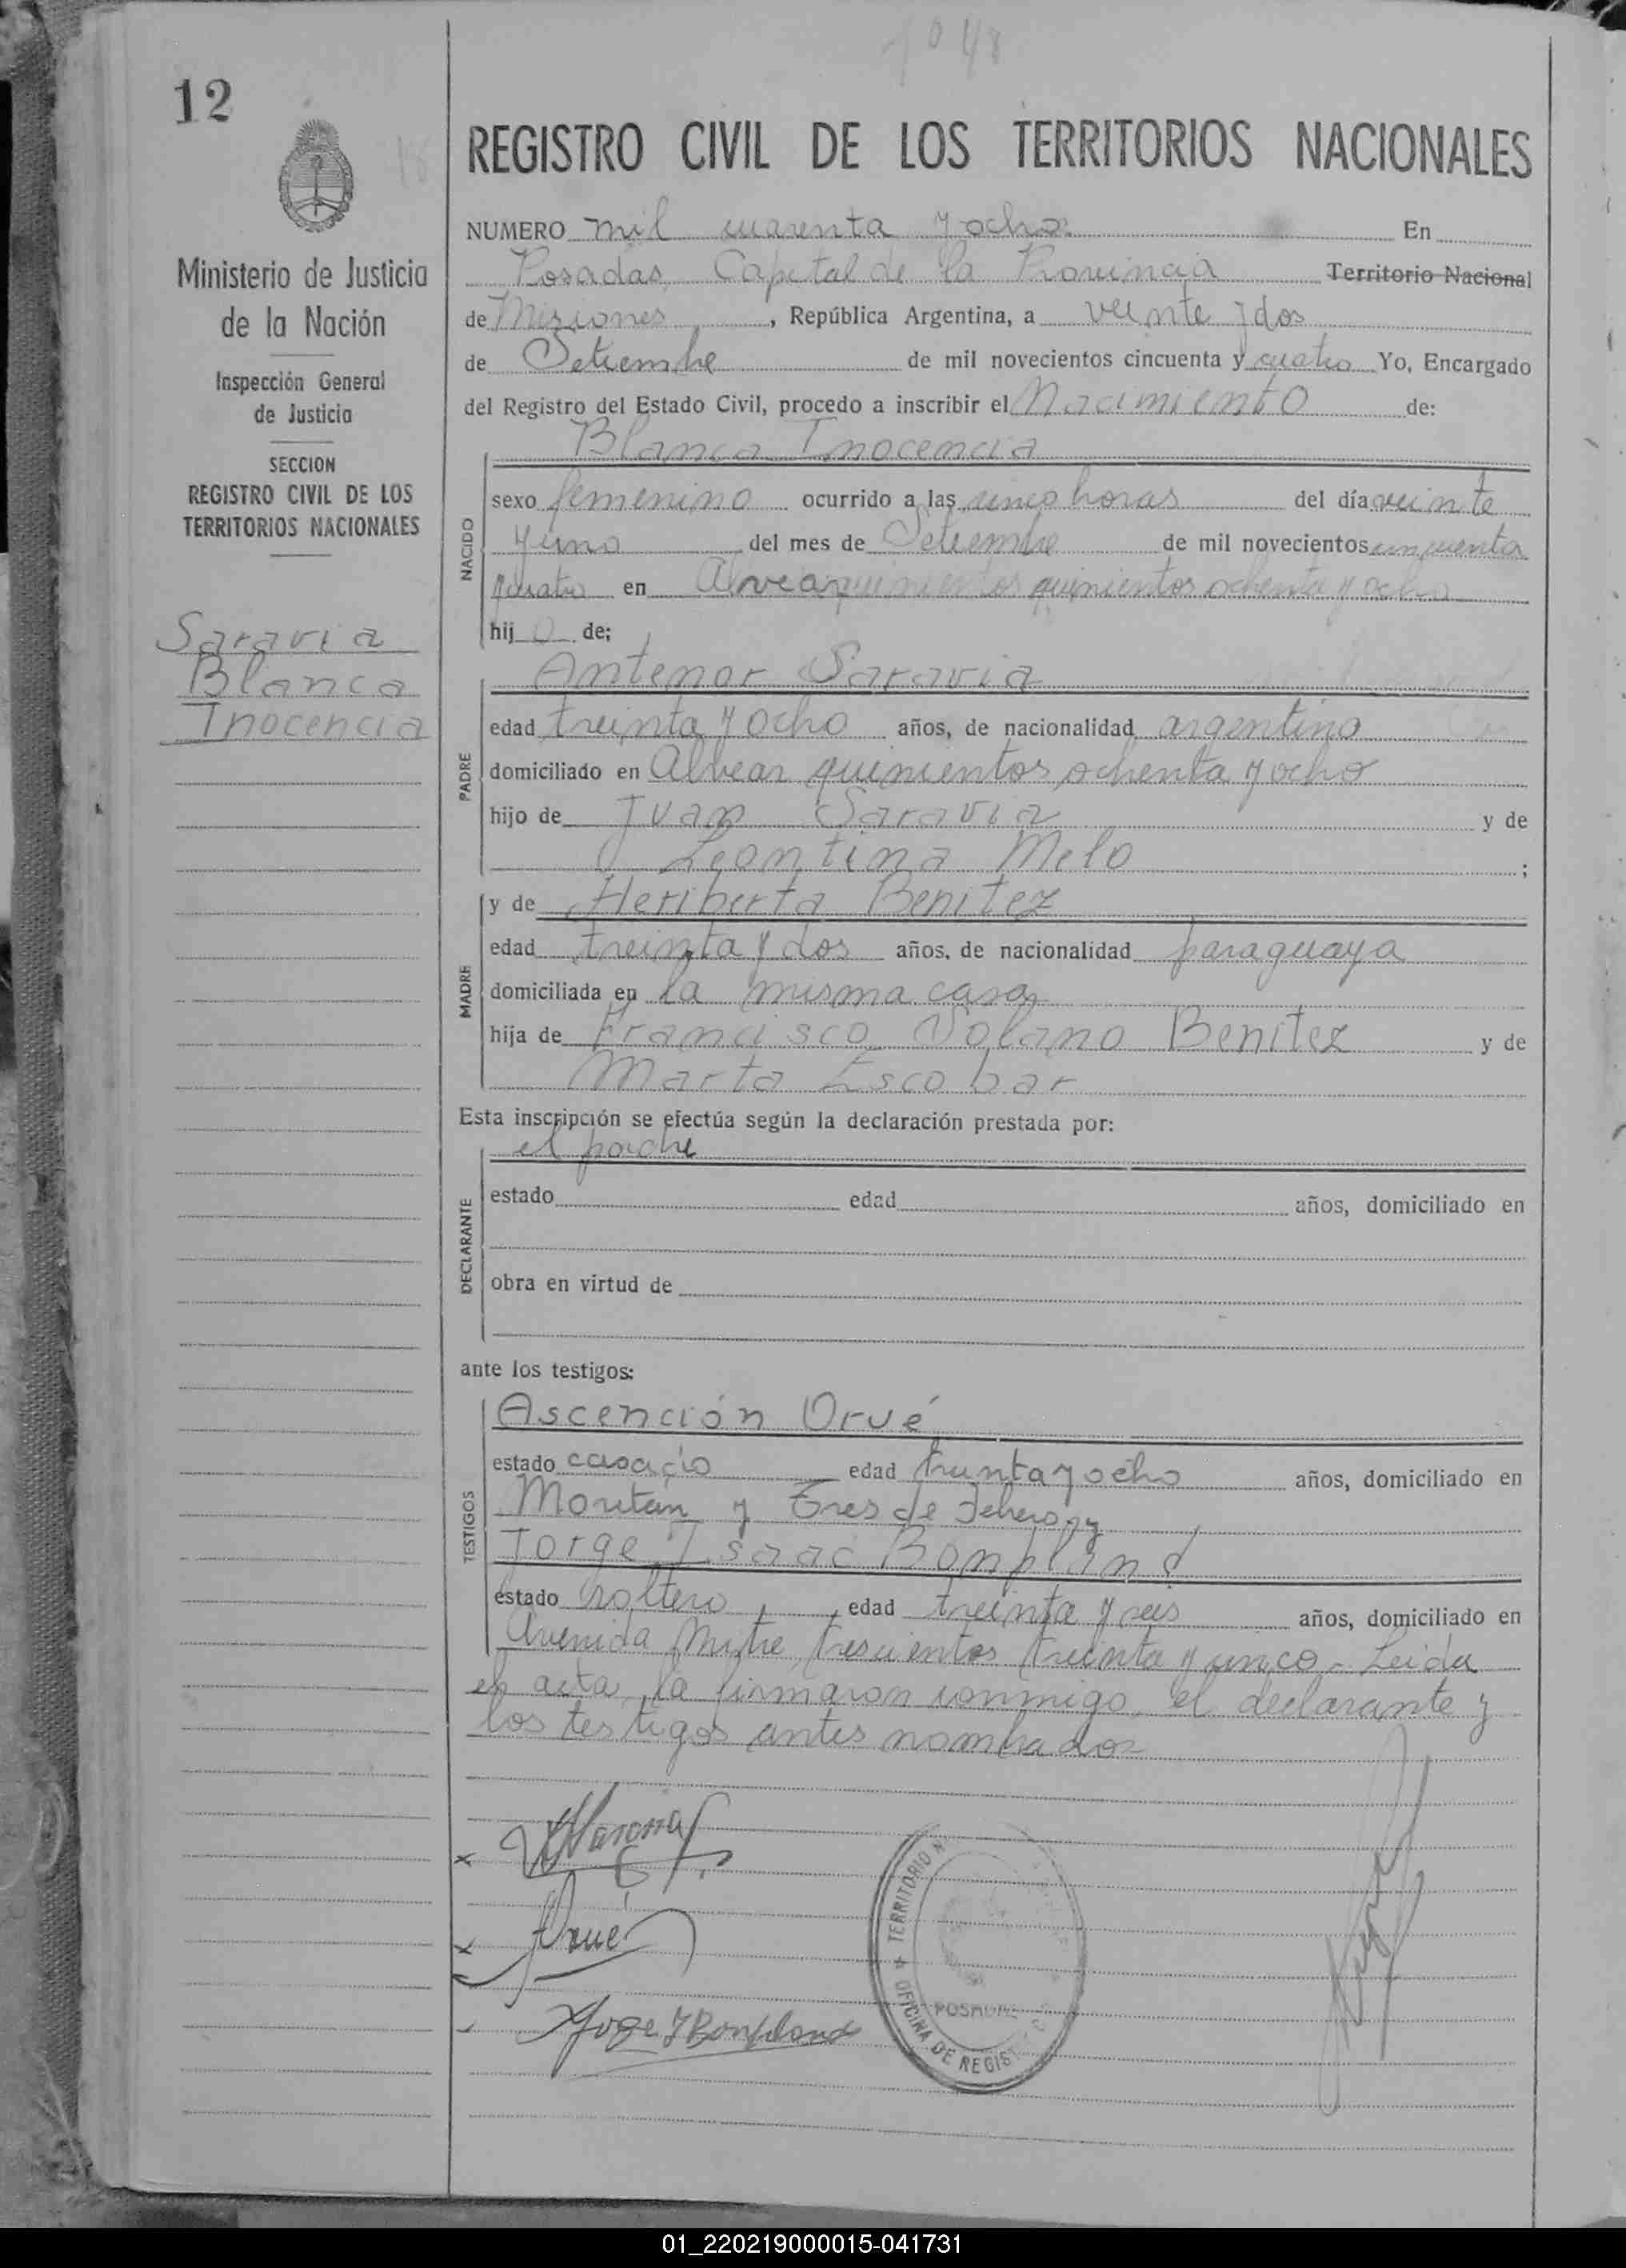 1048
12
REGISTRO CIVIL DE LOS TERRITORIOS NACIONALES
Ministerio de Justicia
de la Nación
Inspección General
de Justicia
SECCION
REGISTRO CIVIL DE LOS
TERRITORIOS NACIONALES
Saravia
Blanca
Inocencia
NUMERO mil cuarenta y ocho En
Posadas, Capital de la Provincia Territorio Nacional
de Misiones, República Argentina, a veinte y dos
de Setiembre de mil novecientos cincuenta y cuatro Yo, Encargado
del Registro del Estado Civil, procedo a inscribir el Nacimiento de:
Blanca Inocencia
NACIDO
sexo femenino ocurrido a las cinco horas del día veinte
y uno del mes de Setiembre de mil novecientos cincuenta
y cuatro en Alvear quinientos quinientos ochenta y ocho
hij de;
PADRE
Antenor Saravia
edad treinta y ocho años, de nacionalidad argentino
domiciliado en Alvear quinientos ochenta y ocho
hijo de Juan Saravia y de
Leontina Melo ;
MADRE
y de Heriberta Benitez
edad treinta y dos años, de nacionalidad paraguaya
domiciliada en la misma casa
hija de Francisco Solano Benitez y de
Marta Escobar
Esta inscripción se efectúa según la declaración prestada por:
DECLARANTE
el padre
estado edad años, domiciliado en
obra en virtud de
ante los testigos:
TESTIGOS
Ascención Orué
estado casado edad treinta y ocho años, domiciliado en
y Tres de Febrero y
Jorge Isaac Bonpland
estado soltero, edad treinta y seis años, domiciliado en
Avenida Mitre, trescientos treinta y cinco - Leida
el acta, la firmaron conmigo, el declarante y
los testigos antes nombrados
Orué
Jorge I Bonpland
TERRITORIO N
POSADAS
OFICINA DE REGIST
01_220219000015-041731